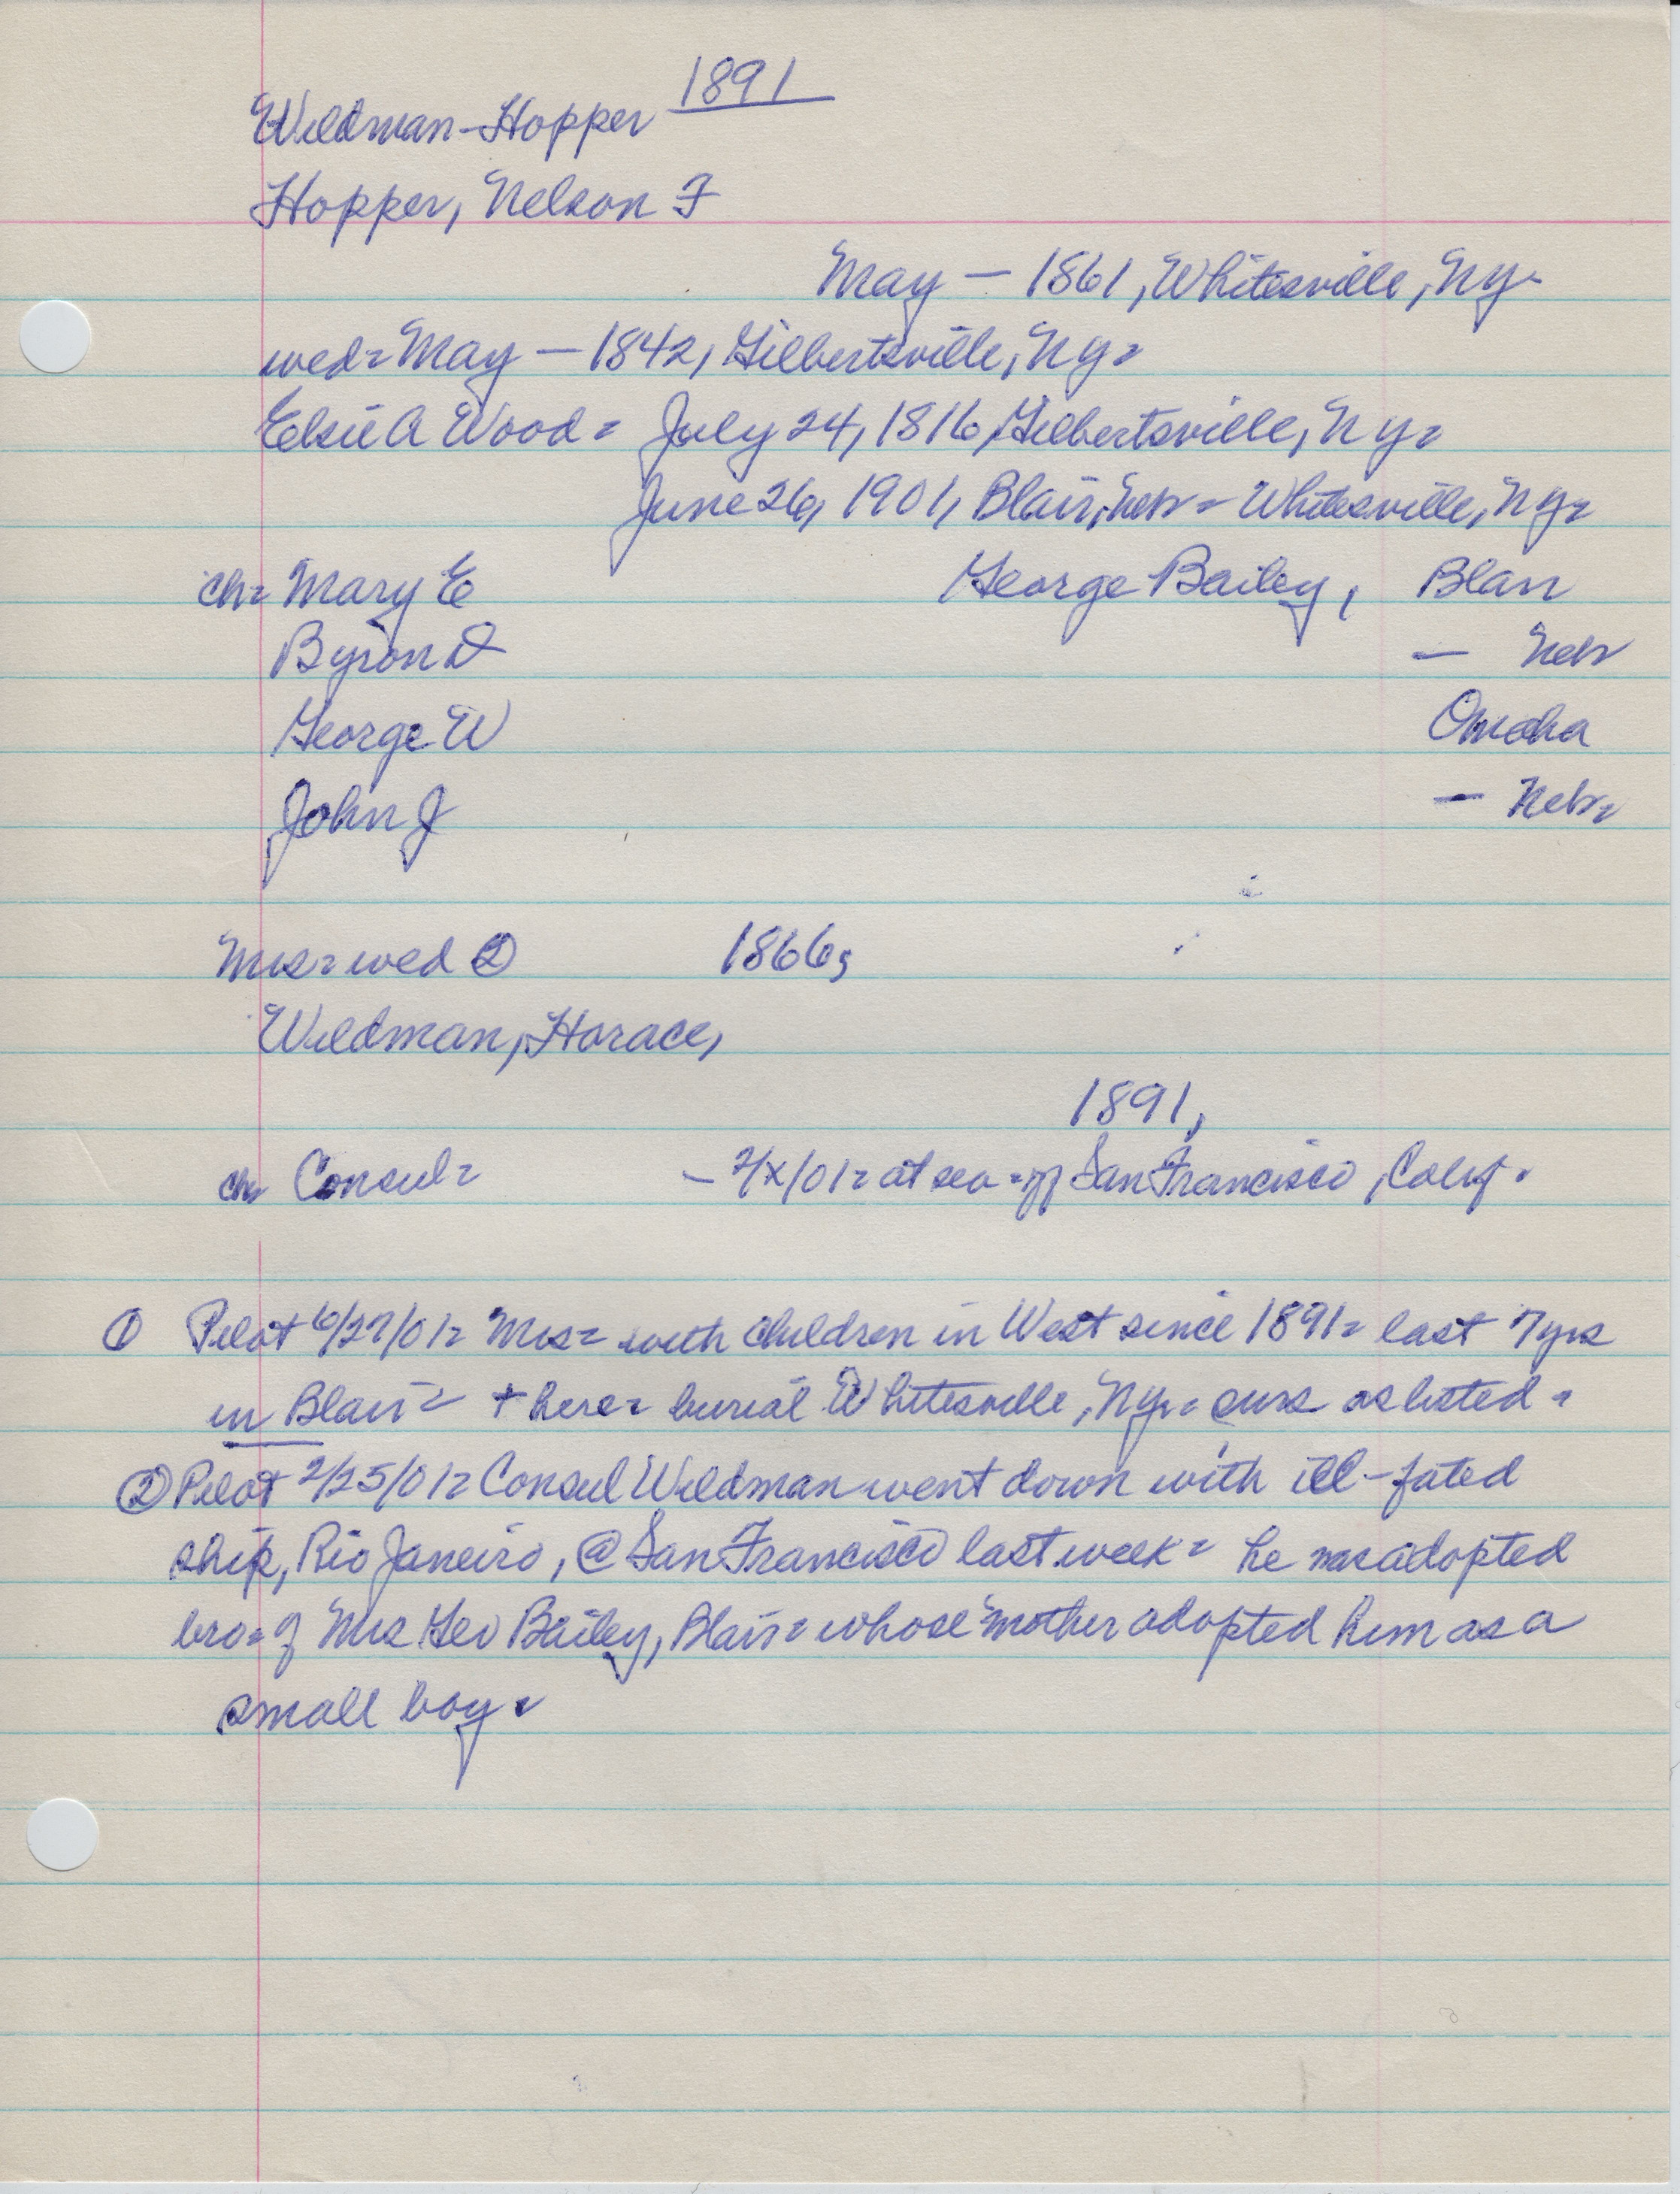 1891
Wildman-Hopper
Hopper, Nelson F
May - 1861, Whitesville, Ny-
wed= May - 1842, Gilbertsville, Ny=
Elsie A Wood= July 24, 1816, Gilbertsville, Ny=
June 26, 1901, Blair, Nebr= Whitesville, Ny=
ch= Mary E George Bailey, Blair
Byron D - Nebr
George W Omaha
John J - Nebr=
Mrs= wed ② 1866,
Wildman, Horace,
1891,
ch= Consul= - 2/x/01= at sea = off San Francisco, Calif.
① Pilot 6/27/01= Mrs= with children in West since 1891= last 7 yrs
in Blair= + here= burial Whitesville, Ny.= surs as listed=
② Pilot 2/25/01= Consul Wildman went down with ill-fated
ship, Rio Janeiro, @ San Francisco last week= he was adopted
bro= of Mrs Geo Bailey, Blair= whose mother adopted him as a
small boy=